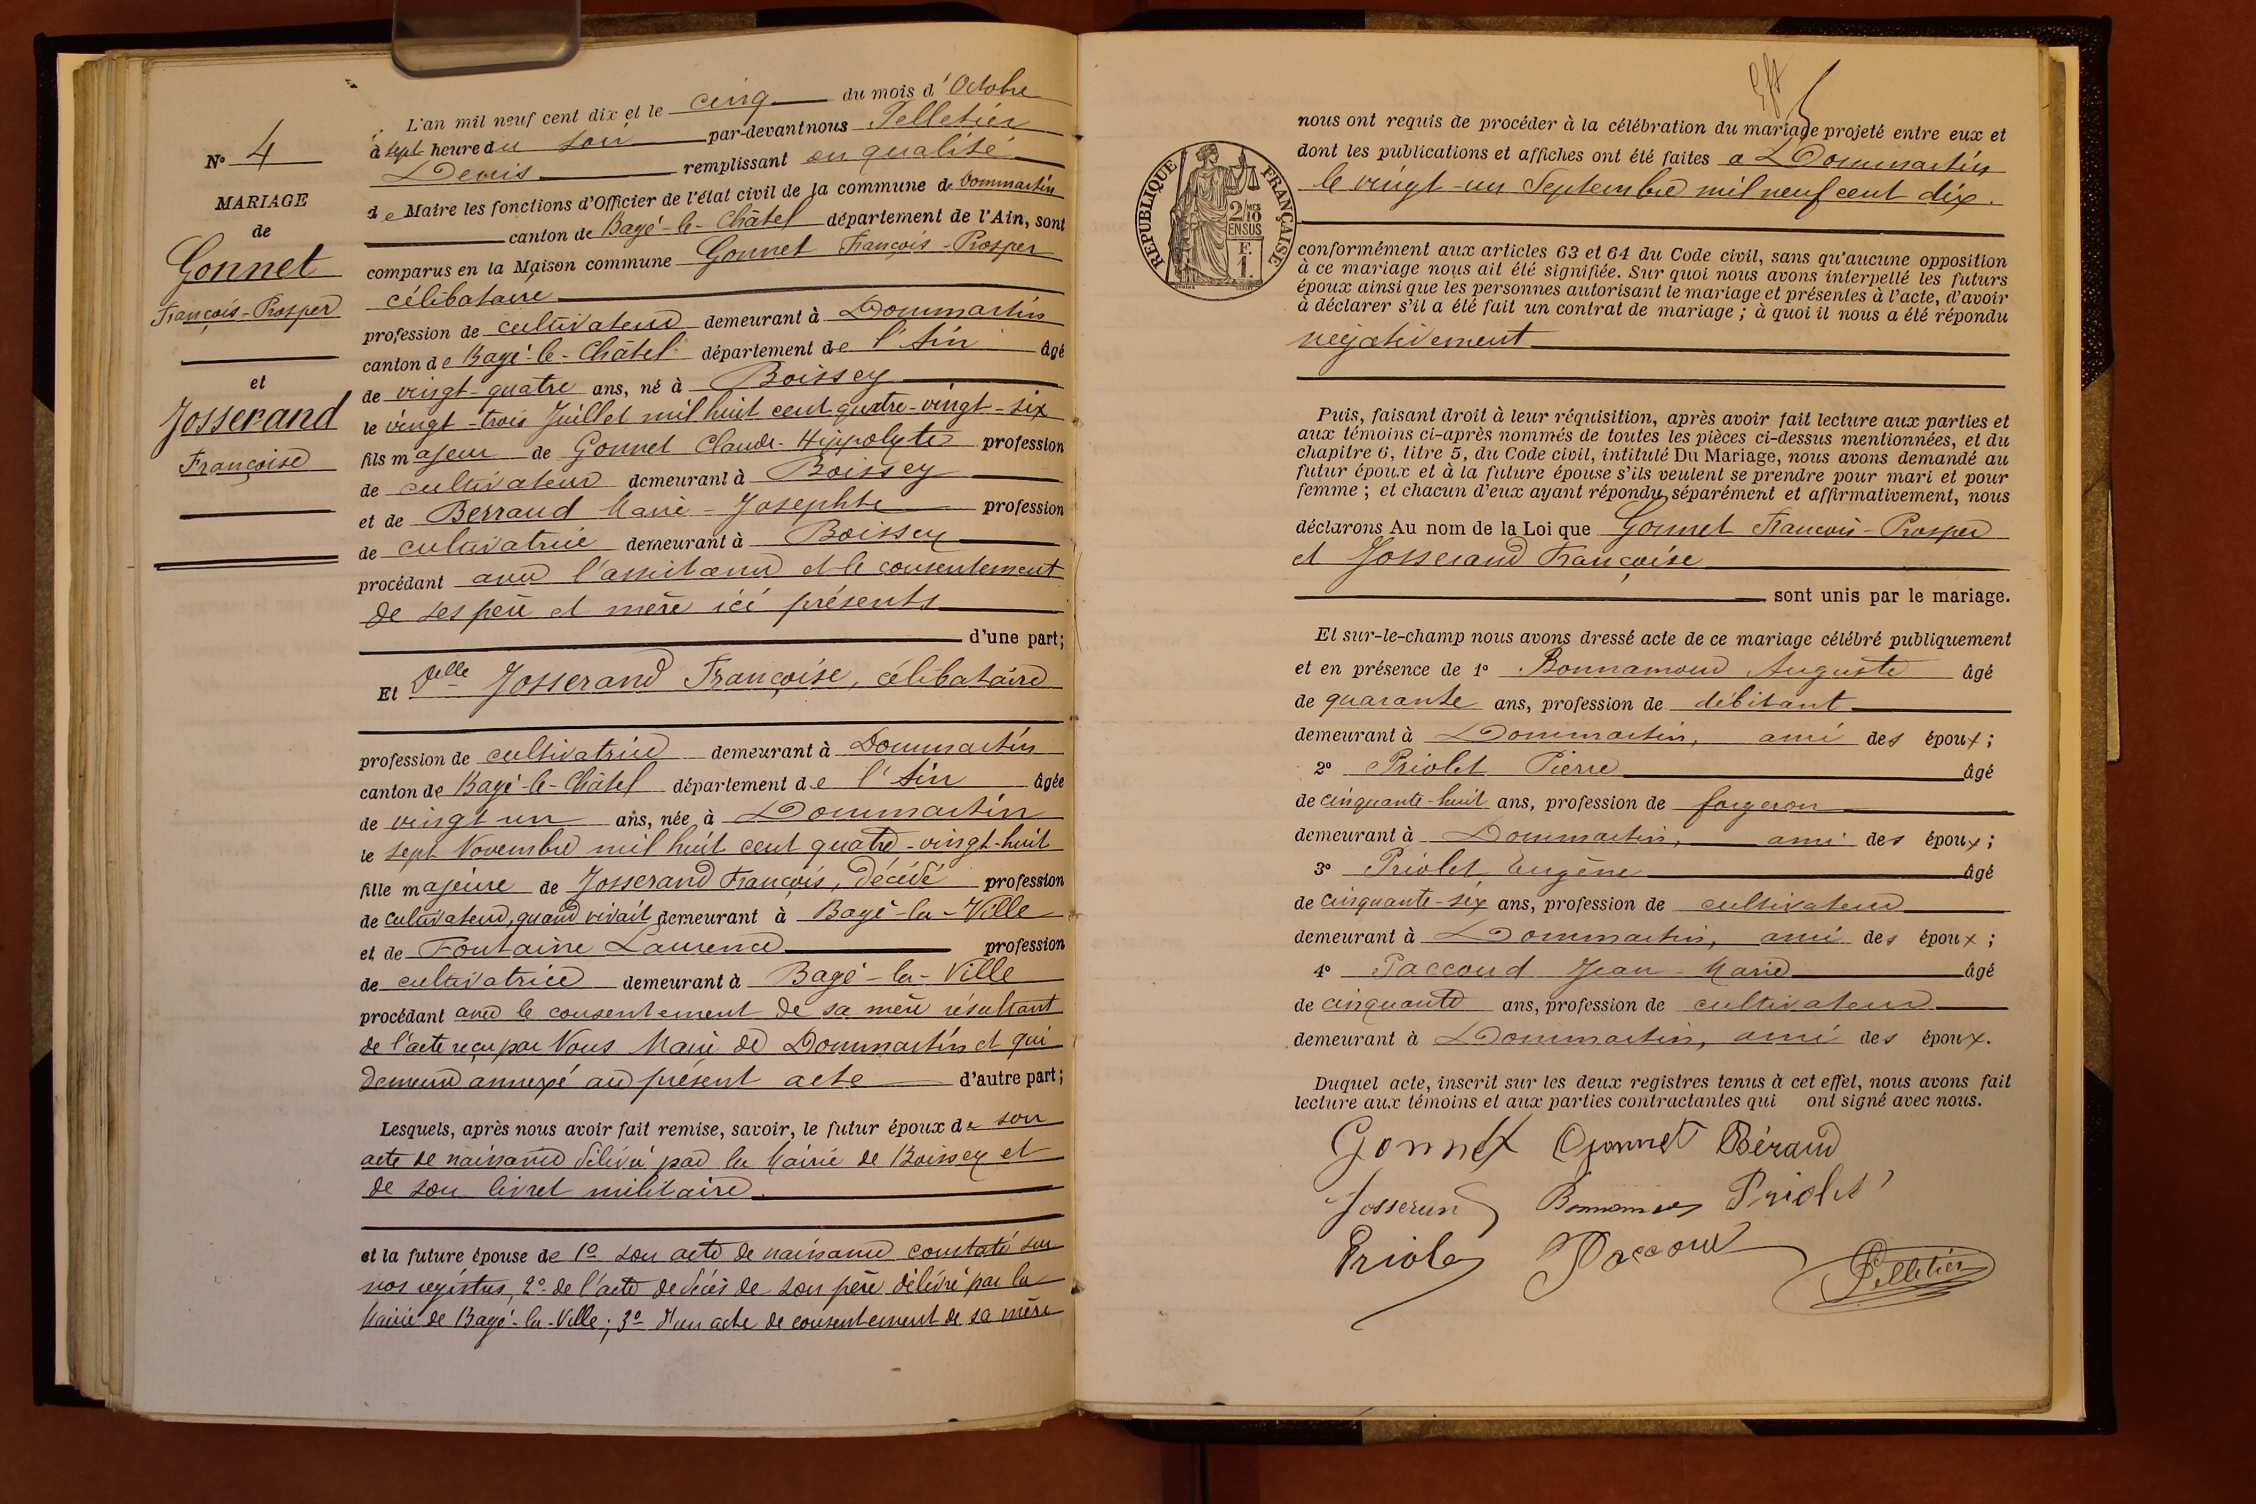 N° 4
MARIAGE
de
Gonnet
François-Prosper
et
Josserand
Françoise
L'an mil neuf cent dix et le cinq du mois d'Octobre
à sept heure du soir par-devant nous Pelletier
Denis remplissant en qualité
de Maire les fonctions d'Officier de l'état civil de la commune de Dommartin
canton de Bagé-le-Châtel département de l'Ain, sont
comparus en la Maison commune Gonnet François-Prosper
célibataire
profession de cultivateur demeurant à Dommartin
canton de Bagé-le-Châtel département de l'Ain âgé
de vingt-quatre ans, né à Boissey
le vingt-trois Juillet mil huit cent quatre-vingt-six
fils majeur de Gonnet Claude-Hippolyte profession
de cultivateur demeurant à Boissey
et de Berraud Marie-Josephte profession
de cultivatrice demeurant à Boissey
procédant avec l'assistance et le consentement
de ses père et mère ici présents
d'une part;
Et Delle Josserand Françoise, célibataire
profession de cultivatrice demeurant à Dommartin
canton de Bagé-le-Châtel département de l'Ain âgée
de vingt un ans, née à Dommartin
le sept Novembre mil huit cent quatre-vingt-huit
fille majeure de Josserand François, décédé profession
de cultivateur, quand vivait demeurant à Bagé-la-Ville
et de Fontaine Laurence profession
de cultivatrice demeurant à Bagé-la-Ville
procédant avec le consentement de sa mère résultant
de l'acte reçu par Nous Maire de Dommartin et qui
demeure annexé au présent acte d'autre part;
Lesquels, après nous avoir fait remise, savoir, le futur époux de son
acte de naissance délivré par la Mairie de Boissey et
de son livret militaire.
et la future épouse de 1° son acte de naissance constaté sur
nos registres, 2° de l'acte de décès de son père délivré par la
Mairie de Bagé-la-Ville; 3° d'un acte de consentement de sa mère
RÉPUBLIQUE FRANÇAISE
2/10 MES
EN SUS
F.
1.
nous ont requis de procéder à la célébration du mariage projeté entre eux et
dont les publications et affiches ont été faites a Dommartin
le vingt-un Septembre mil neuf cent dix.
conformément aux articles 63 et 64 du Code civil, sans qu'aucune opposition
à ce mariage nous ait été signifiée. Sur quoi nous avons interpellé les futurs
époux ainsi que les personnes autorisant le mariage et présentes à l'acte, d'avoir
à déclarer s'il a été fait un contrat de mariage; à quoi il nous a été répondu
négativement
Puis, faisant droit à leur réquisition, après avoir fait lecture aux parties et
aux témoins ci-après nommés de toutes les pièces ci-dessus mentionnées, et du
chapitre 6, titre 5, du Code civil, intitulé Du Mariage, nous avons demandé au
futur époux et à la future épouse s'ils veulent se prendre pour mari et pour
femme; et chacun d'eux ayant répondu séparément et affirmativement, nous
déclarons Au nom de la Loi que Gonnet François-Prosper
et Josserand Françoise
sont unis par le mariage.
Et sur-le-champ nous avons dressé acte de ce mariage célébré publiquement
et en présence de 1° Bonnamour Auguste âgé
de quarante ans, profession de débitant
demeurant à Dommartin, ami des époux;
2° Priolet Pierre âgé
de cinquante-huit ans, profession de forgeron
demeurant à Dommartin, ami des époux;
3° Priolet Eugène âgé
de cinquante-six ans, profession de cultivateur
demeurant à Dommartin, ami des époux;
4° Paccoud Jean-Marie âgé
de cinquante ans, profession de cultivateur
demeurant à Dommartin, ami des époux.
Duquel acte, inscrit sur les deux registres tenus à cet effet, nous avons fait
lecture aux témoins et aux parties contractantes qui ont signé avec nous.
Gonnet Gonnet Béraud
Josserand Bonnamour Priolet
Priolet Paccoud
Pelletier